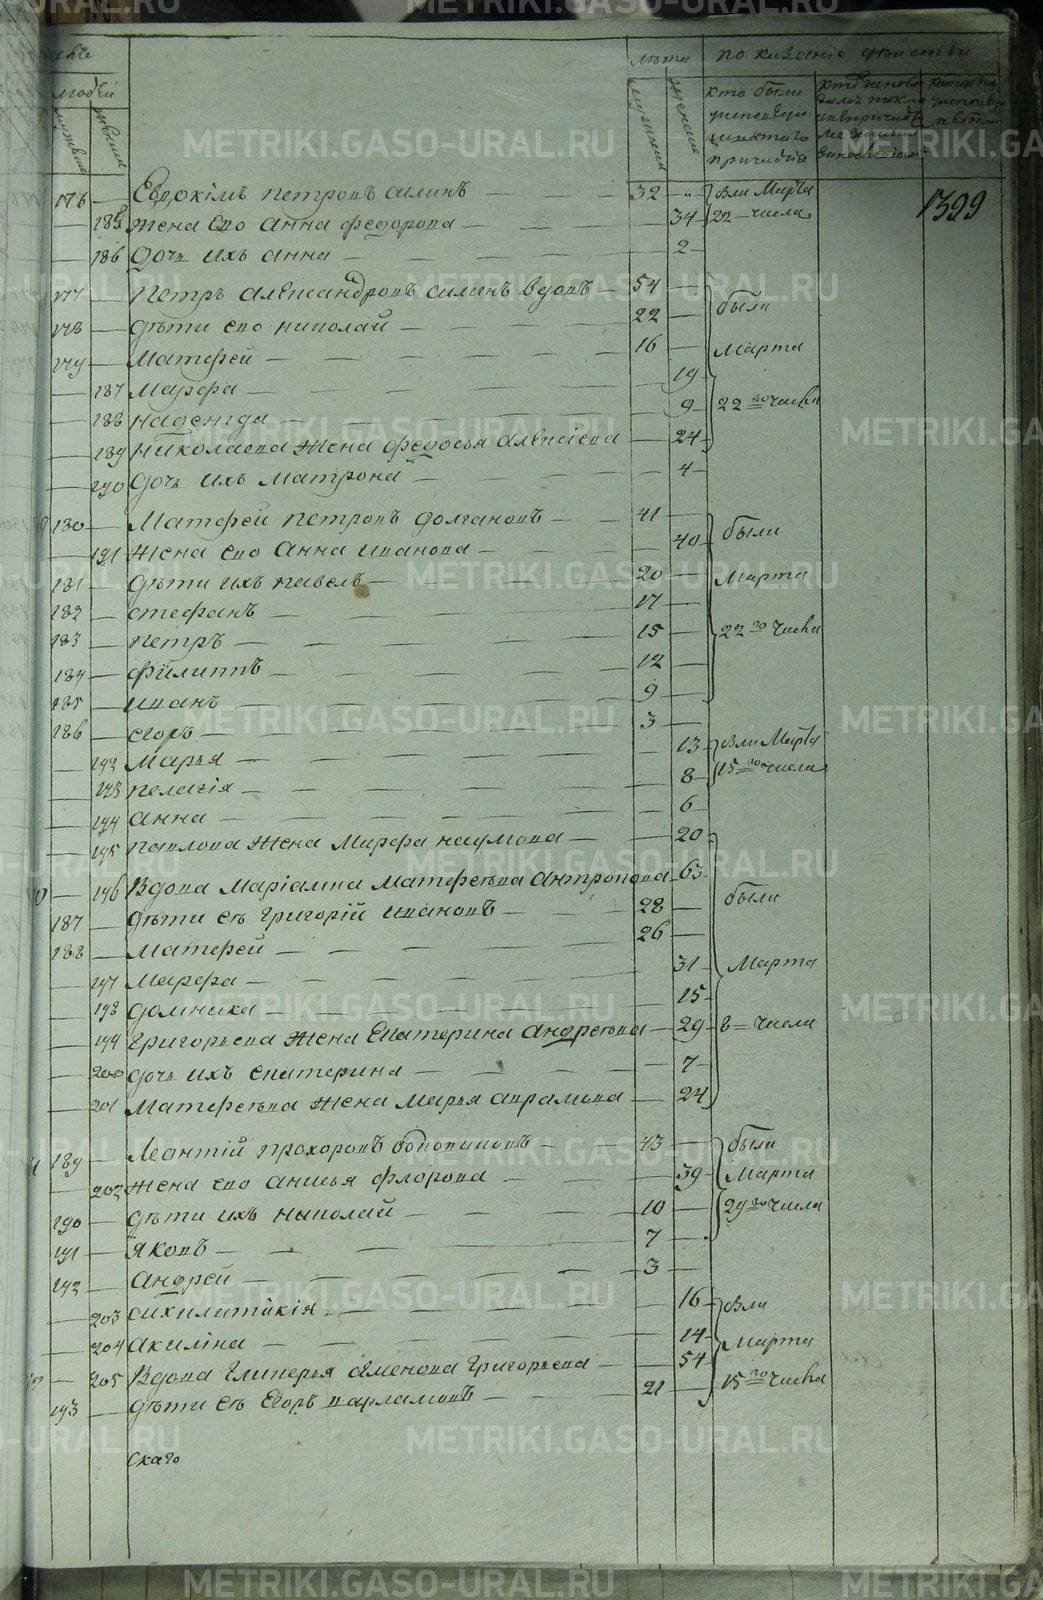 лѣта по казаніе дѣйства
людей
мужеска женска кто были
исповеди
и святаго
причастія
176 Евдокімъ петровъ силинъ 32 " Были Марта 1399
185 жена ево Анна федорова 34 22 числа
186 дочь ихъ анна 2
177 Петръ александровъ силинъ вдовъ 54
178 дѣти ево николай 22 были
179 Матфей 16 Марта
187 Марфа 19
188 надежда 9 22 го числа
189 николаева жена федосья алексіева 24
190 дочь ихъ матрона 4
180 Матфей петровъ долгановъ 41
191 жена ево Анна иванова 40 были
181 дѣти ихъ павелъ 20 Марта
182 стефанъ 17
183 петръ 15 22 го числа
184 филиппъ 12
185 иванъ 9
186 егоръ 3
192 Марья 13 были Марта
193 пелагія 8 15 го числа
194 анна 6
195 павлова жена Марфа наумова 20
196 Вдова Маріамна Матфеева Антропова 63
187 дѣти еѣ григорій ивановъ 28 были
188 Матфей 26
197 Марфа 31 Марта
198 домника 15
199 григорьева жена Екатерина Андреева 29 8 числа
200 дочь ихъ екатерина 7
201 Матфеева жена Марья аврамова 24
189 Леонтій прохоровъ 43 были
202 жена ево анисья флорова 39 Марта
190 дѣти ихъ николай 10 29 го числа
191 яковъ 7
192 андрей 3
203 сихклитикія 16 были
204 акиліна 14 Марта
205 Вдова Гликерья семенова григорьева 54
193 дѣти еѣ Егоръ варламовъ 21 15 го числа
скаго
METRIKI.GASO-URAL.RU